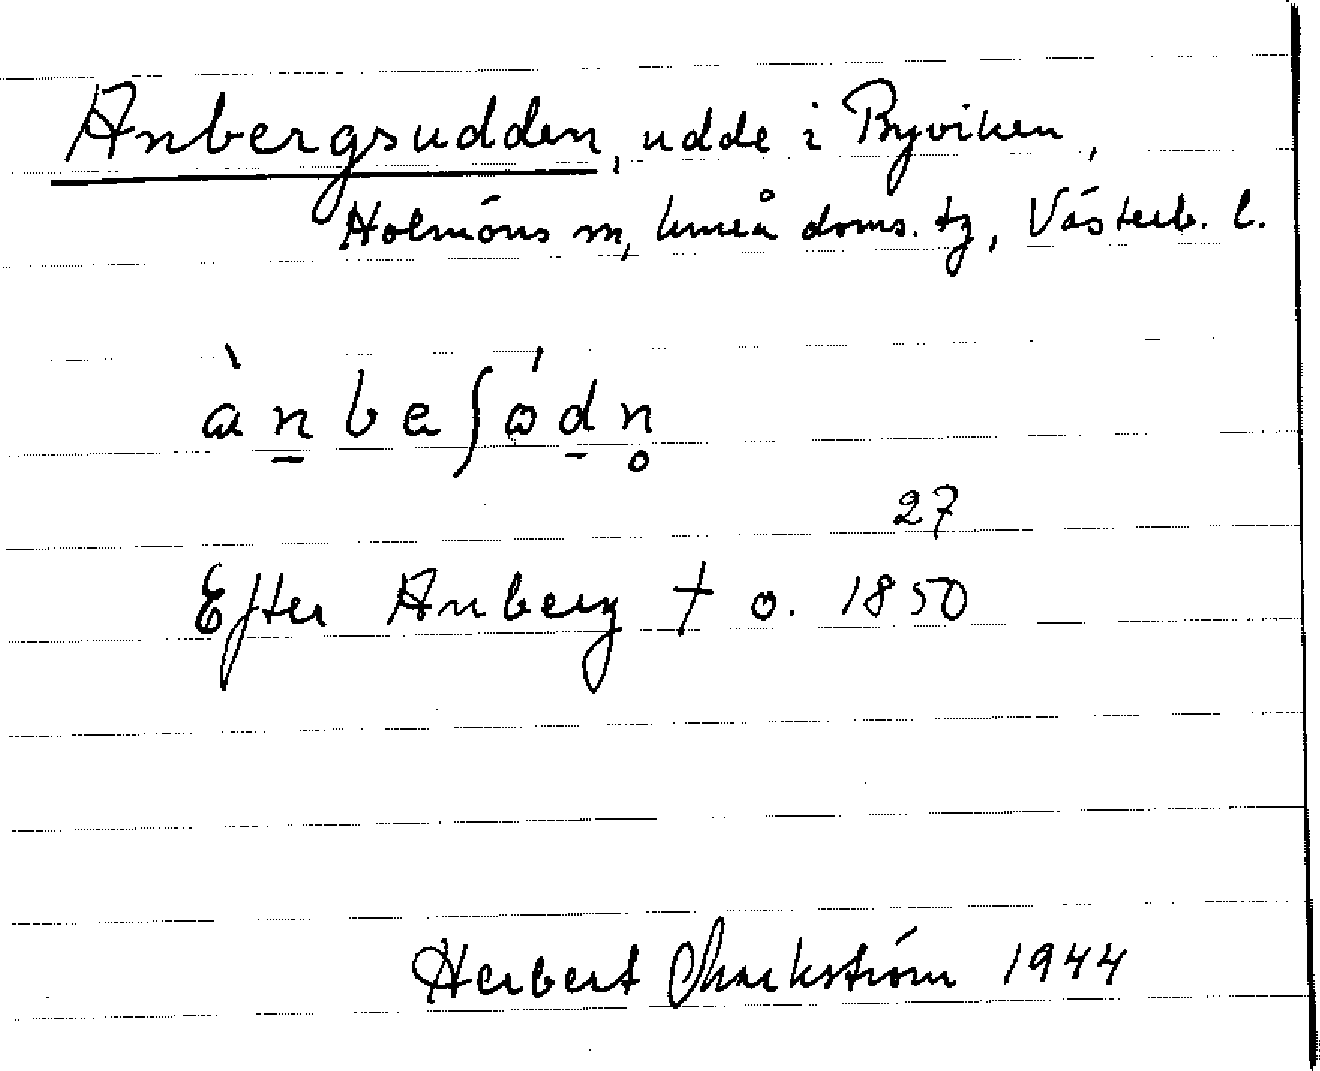 Anbergsudden, udde i Byviken,
Holmöns sn, Umeå doms. tg, Västerb. l.
ànbeʃödn̥
27
Efter Anberg † o. 1850
Herbert Markström 1944